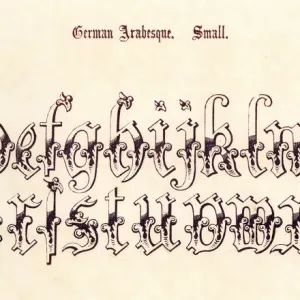 German Arabesque. Small.
efghijkl
rſstuvw